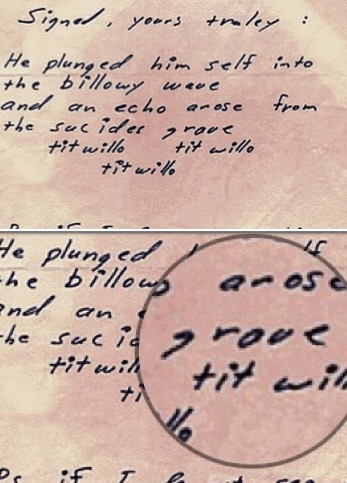 Signed, yours truley :
He plunged him self into
the billowy wave
and an echo arose from
the sucides grave
titwillo titwillo
titwillo
He plunged
he billowy aros
and an
he suc grave
titwill tit will
ti
llo